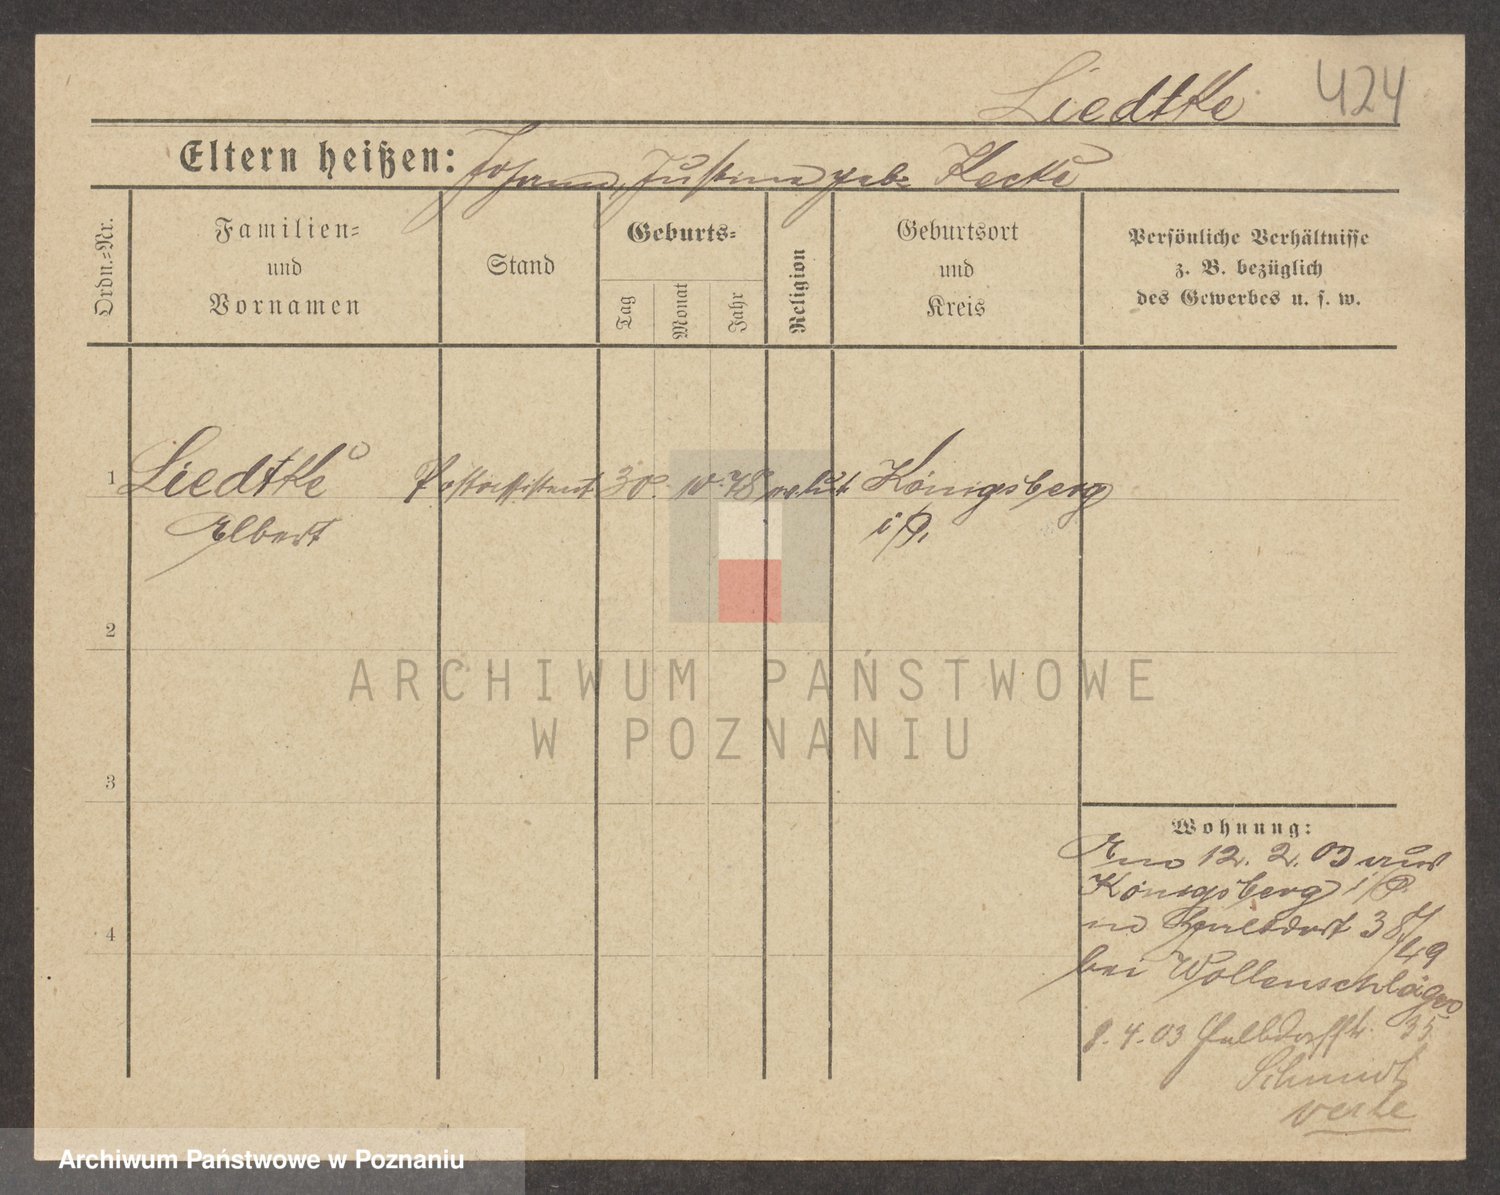 Liedtke 424
Eltern heißen: Johann, Justina geb:
Ordn.=Nr.
Familien=
und
Vornamen
Stand
Geburts=
Tag
Monat
Jahr
Religion
Geburtsort
und
Kreis
Persönliche Verhältnisse
z. B. bezüglich
des Gewerbes u. s. w.
1 Liedtke Postassistent 30. 10. 78 Königsberg
Albert i/P.
2
3
4
Wohnung:
12. 2. 03 aus
Königsberg i/P.
38/49
bei Wollenschläger
8. 4. 03 35
Schmidt
ARCHIWUM PAŃSTWOWE
W POZNANIU
Archiwum Państwowe w Poznaniu